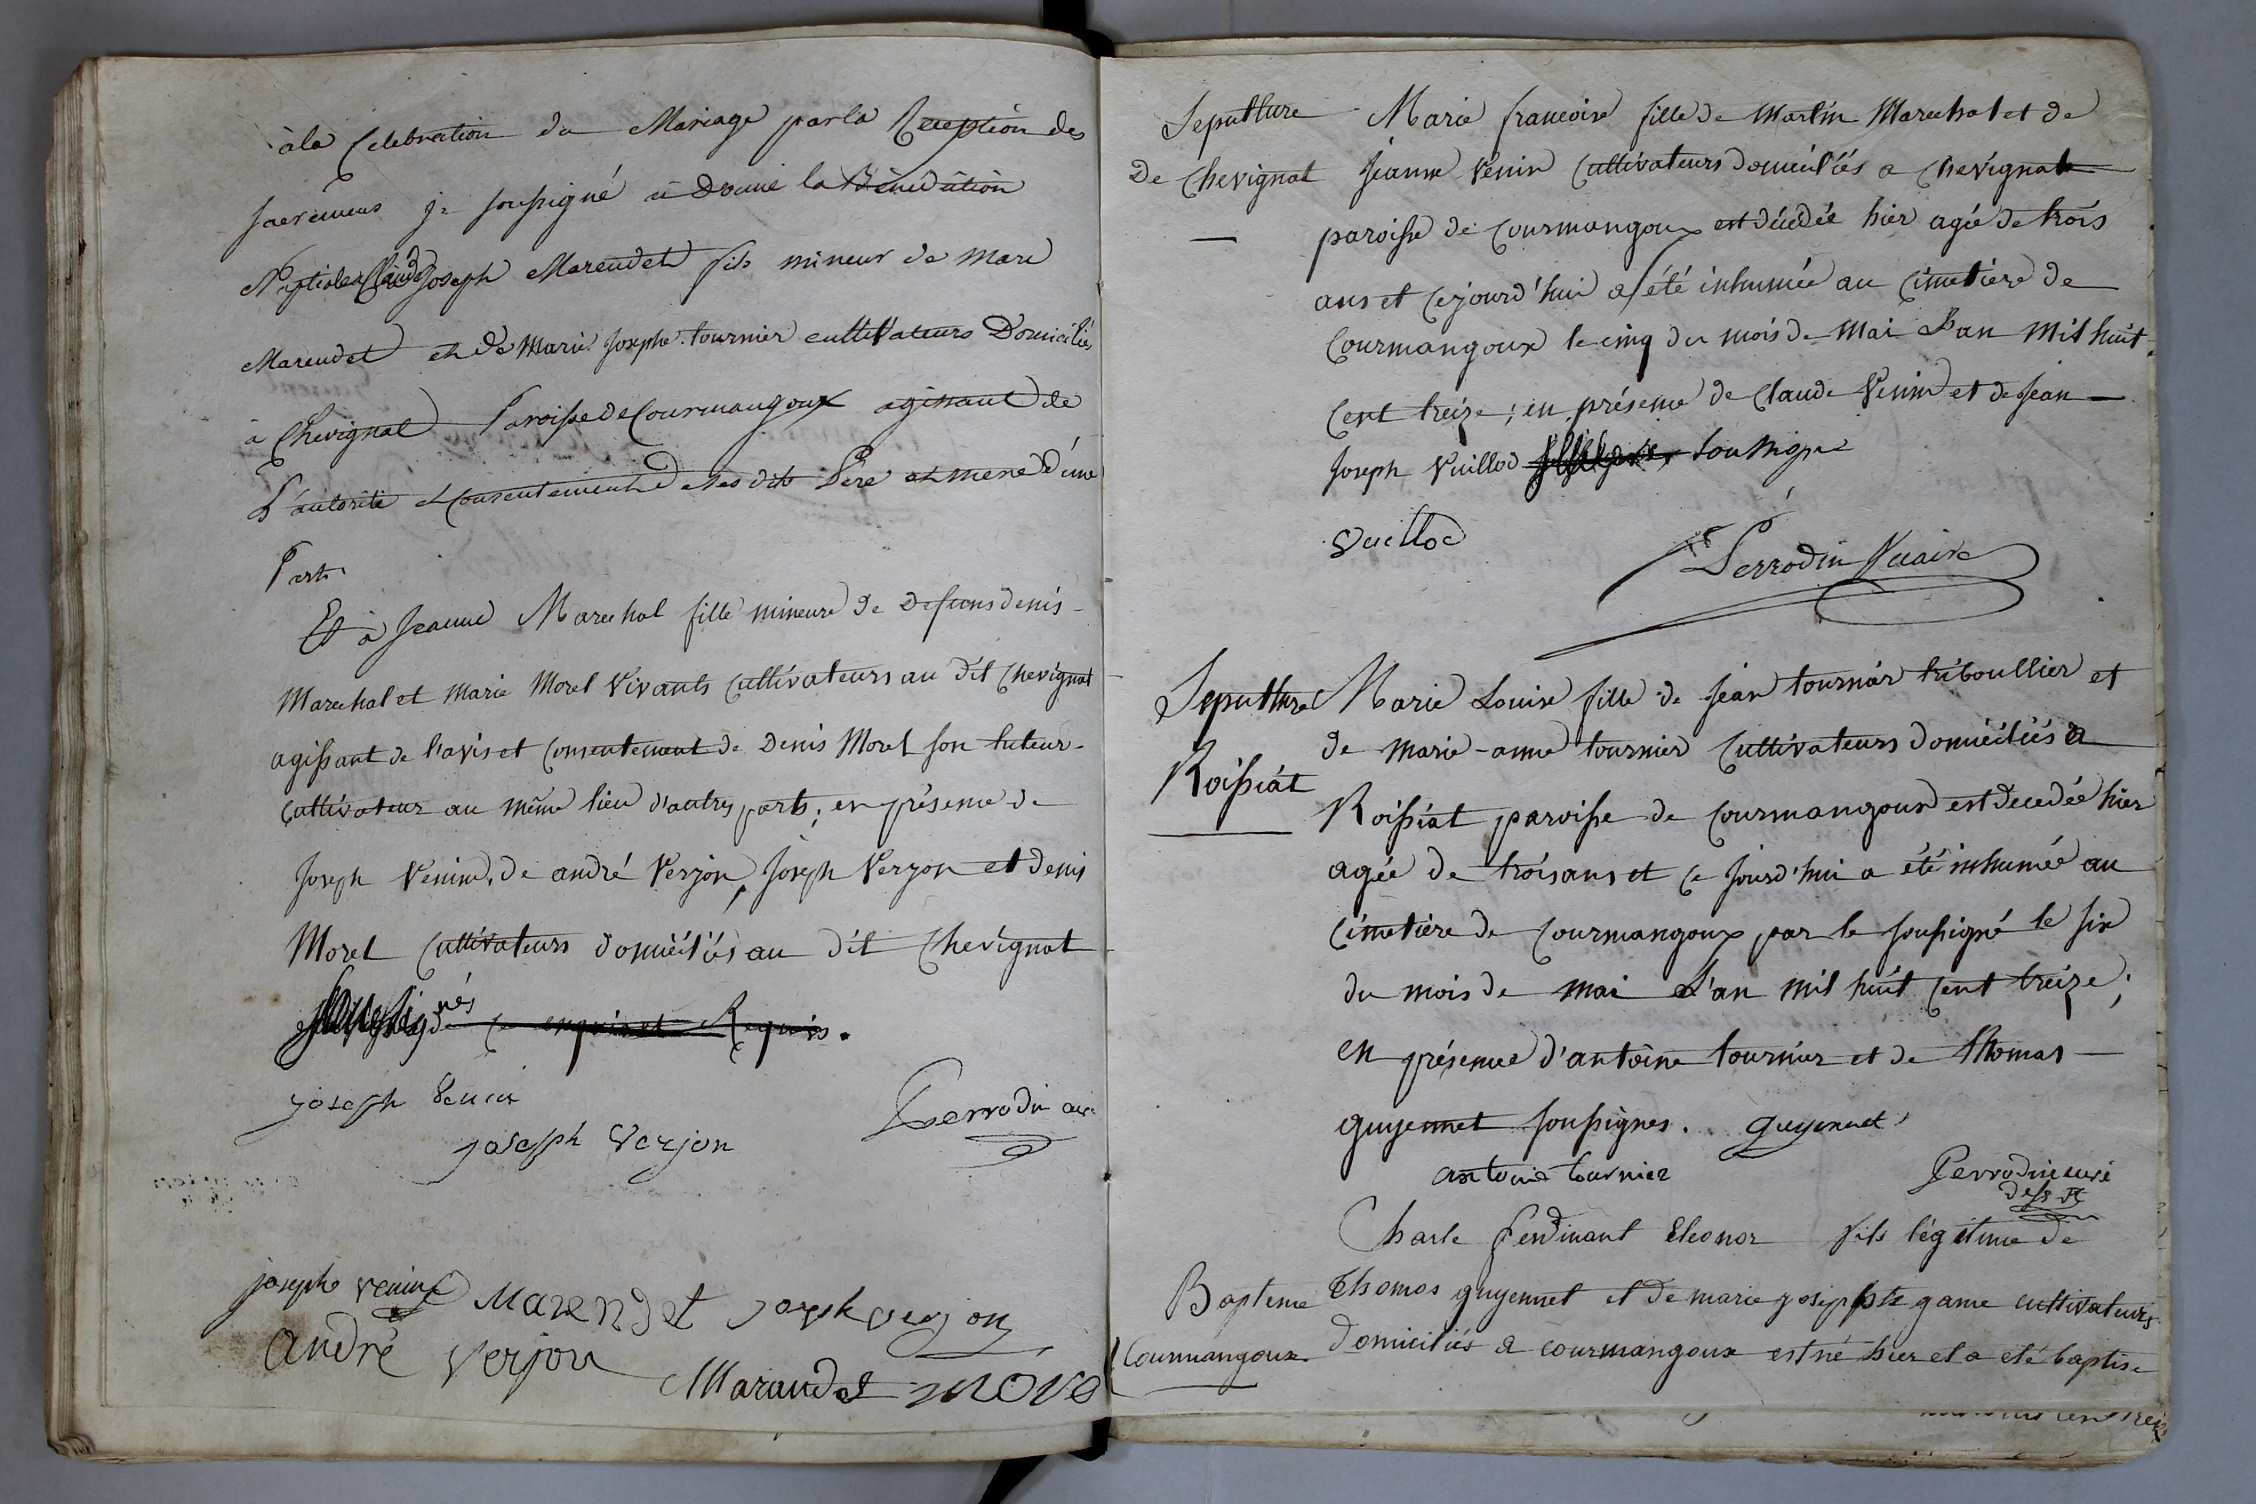 à la Celebration du Mariage par la Reception des
sacremens je soussigné ai Donné la Bénédiction
Nuptiale a Claude Joseph Marendet fils mineur de Marc
Marendet et de Marie Josephe tournier cultivateurs Domiciliés
à Chevignat Paroisse de Courmangoux agissant de
L'autorité et Consentement de ses dits Père et mere d'une
Part.
Et à Jeanne Marechal fille mineure de defuns denis
Marechal et Marie Morel Vivants Cultivateurs au dit Chevignat
agissant de l'avis et Consentement de Denis Morel son tuteur
Cultivateur au même lieu d'autres parts; en présence de
Joseph Venin, de andré Verjon, Joseph Verjon et denis
Morel Cultivateurs domiciliés au dit Chevignat
nés
ce enquis et Requis.
joseph Venin
Perrodin
joseph Verjon
joseph venin Marendet joseph verjon
andré Verjon
Marandet
Sepulture
De Chevignat
Marie francoise fille de Martin Marechal et de
Jeanne Vénin Cultivateurs domiciliés a Chevignat
paroisse de Courmangoux est décédée hier agée de trois
ans et Cejourd'hui a été inhumée au Cimetière de
Courmangoux le cinq du mois de Mai L'an Mil huit
Cent treize; en présence de Claude Venin et de Jean
Joseph Vuillod soussigné
Vuillod
Perrodin Vicaire
Sepulture
Roissiat
Marie Louise fille de Jean tournier triboullier et
de Marie-anne tournier Cultivateurs domiciliés a
Roissiat paroisse de Courmangoux est decedée hier
agée de trois ans et ce jourd'hui a été inhumée au
Cimetière de Courmangoux par le soussigné le six
du mois de mai L'an mil huit Cent treize;
en présence d'antoine tournier et de thomas
guyennet soussignes. guyennet
antoine tournier
Perrodin curé
Charle ferdinant Eleonor fils légitime de
Bapteme
Courmangoux
thomas guyennet et de marie josephte game cultivateurs
domiciliés a courmangoux est né hier et a eté baptise